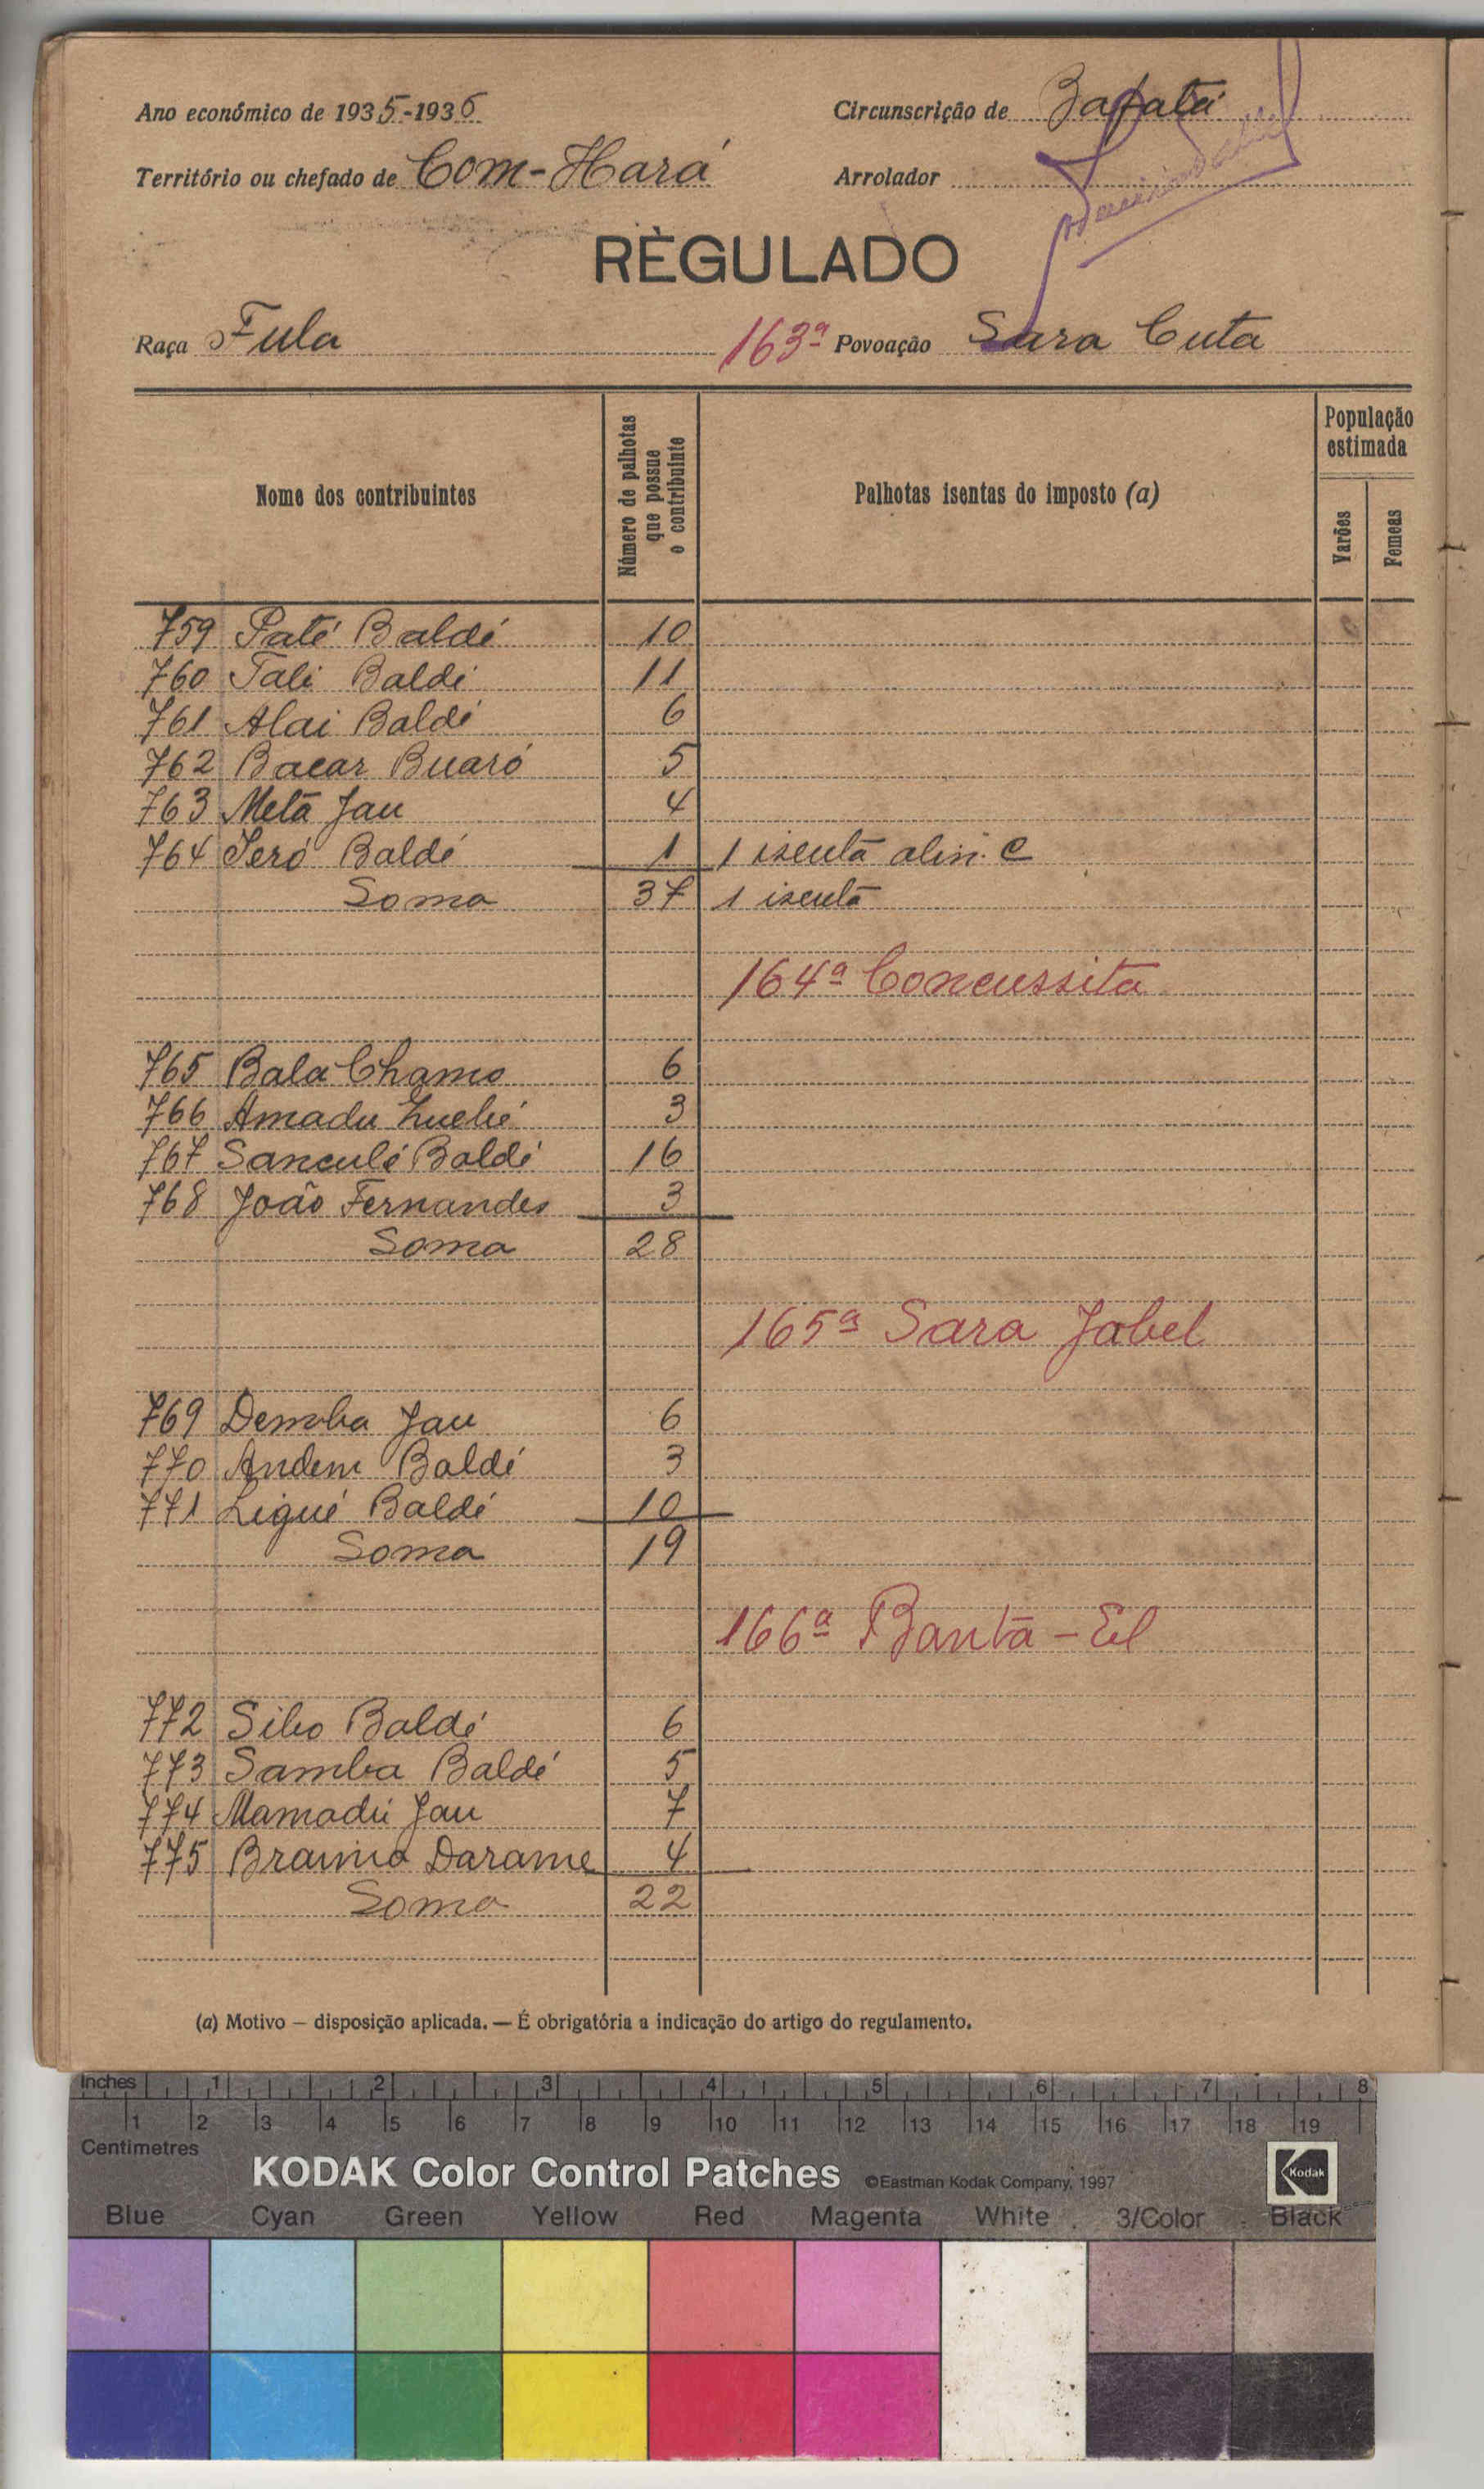 Ano económico de 1935-1936
Circunscrição de Bafatá
Território ou chefado de Com-Hará
Arrolador
RÈGULADO
Raça Fula
163ª Povoação Sara Cuta
Nome dos contribuintes
Número de palhotas que possue o contribuinte
Palhotas isentas do imposto (a)
População estimada
Varões
Femeas
759 Paté Baldé 10
760 Tali Baldé 11
761 Alai Baldé 6
762 Bacar Buaró 5
763 Metá Jau 4
764 Seró Baldé 1 1 isenta alin. C
Soma 37 1 isenta
164ª Concussita
765 Bala Chamo 6
766 Amadu 3
767 Sanculé Baldé 16
768 João Fernandes 3
Soma 28
165ª Sara Jabel
769 Demba Jau 6
770 Andem Baldé 3
771 Ligué Baldé 10
Soma 19
166ª Banta-El
772 Sibo Baldé 6
773 Samba Baldé 5
774 Mamadú Jau 7
775 Braima Darame 4
Soma 22
(a) Motivo — disposição aplicada. — É obrigatória a indicação do artigo do regulamento.
Inches 1 2 3 4 5 6 7 8
1 2 3 4 5 6 7 8 9 10 11 12 13 14 15 16 17 18 19
Centimetres
KODAK Color Control Patches ©Eastman Kodak Company, 1997 Kodak
Blue Cyan Green Yellow Red Magenta White 3/Color Black